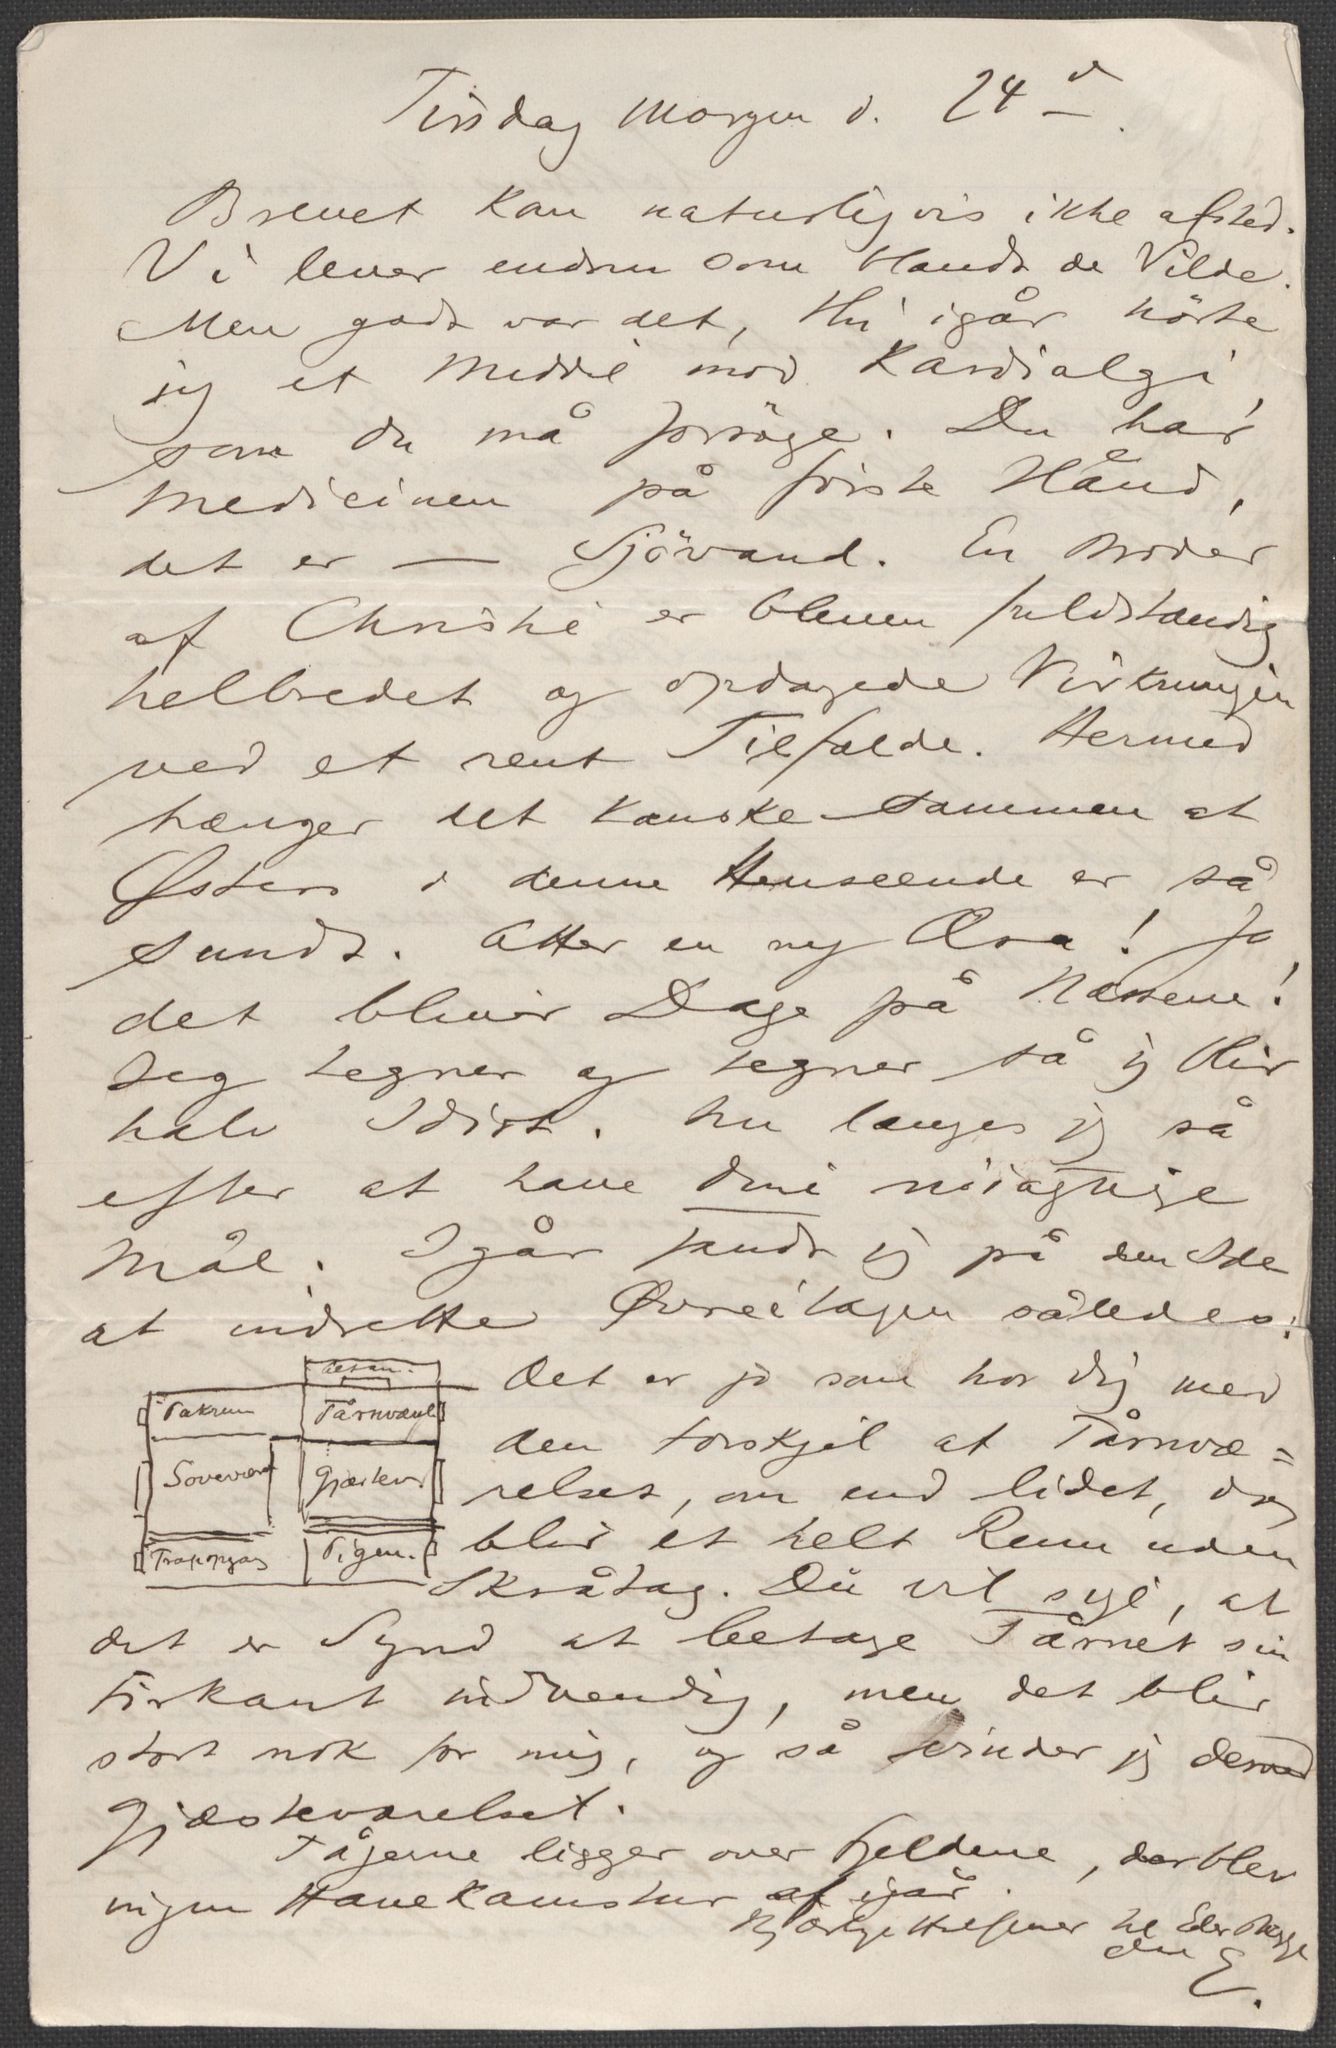 Tirsdag Morgen d. 24de
Brevet kan naturligvis ikke afsted.
Vi lever endnu som blandt de Vilde.
Men godt var det, thi igår hörte
jeg et Middel mod Kardialgi
som du må forsöge. Du har
Medicinen på første Hånd,
det er — Sjövand. En Broder
af Christie er bleven fuldstændig
helbredet og opdagede Virkningen
ved et rent Tilfælde. Hermed
hænger det kanske sammen at
Østers i denne Henseende er så
sundt. Atter en ny Æra! Ja
det bliver Dage på Næssene!
Jeg tegner og tegner så jeg blir
halv Idiot. Nu længes jeg så
efter at have dine nöiagtige
Mål. Igår fandt jeg på den Ide
at indrette Øvreetagen således:
Altan.
Pakrum Tårnværel
Soveværel Gjæstev
Trapopgang Pigev.
Det er jo som hos dig med
den Forskjel at Tårnvæ=
relset, om end lidet, dog
blir et helt Rum uden
Skråtag. Du vil sige, at
det er Synd at betage Tårnet sin
Firkant indvendig, men det blir
stort nok for mig, og så vinder jeg derved
Gjæsteværelset.
Tågerne ligger over Fjeldene, der blev
ingen Hanekamstur af igår.
Hjærtige Hilsener til Eder Begge
din E.